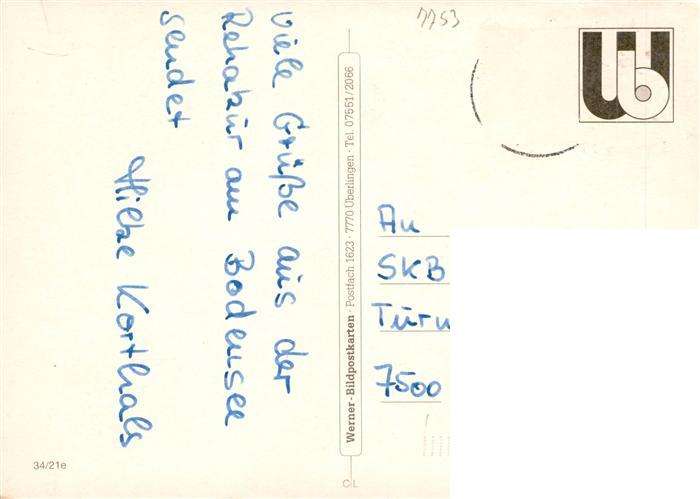 Viele Grüße aus der
Rehakur am Bodensee
sendet
Korthals
Werner-Bildpostkarten · Postfach 1623 · 7770 Überlingen · Tel. 07551/2066
An
SKB
Turn
7500
7753
34/21e
CL